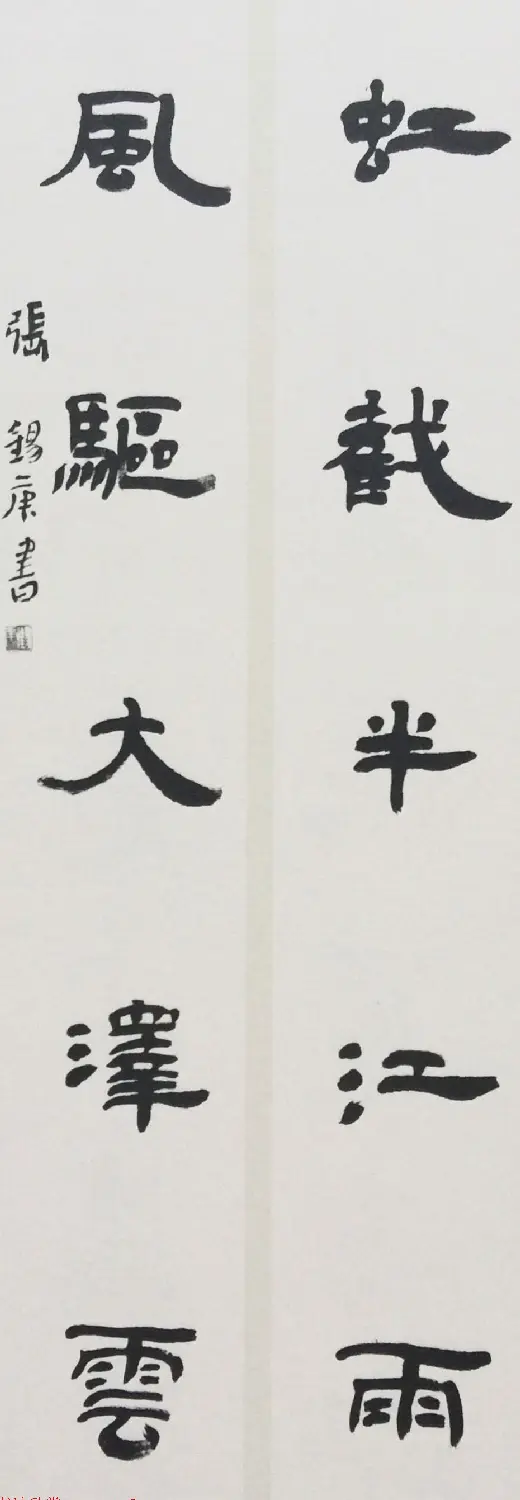 虹截半江雨
風驅大澤雲
張錫庚書